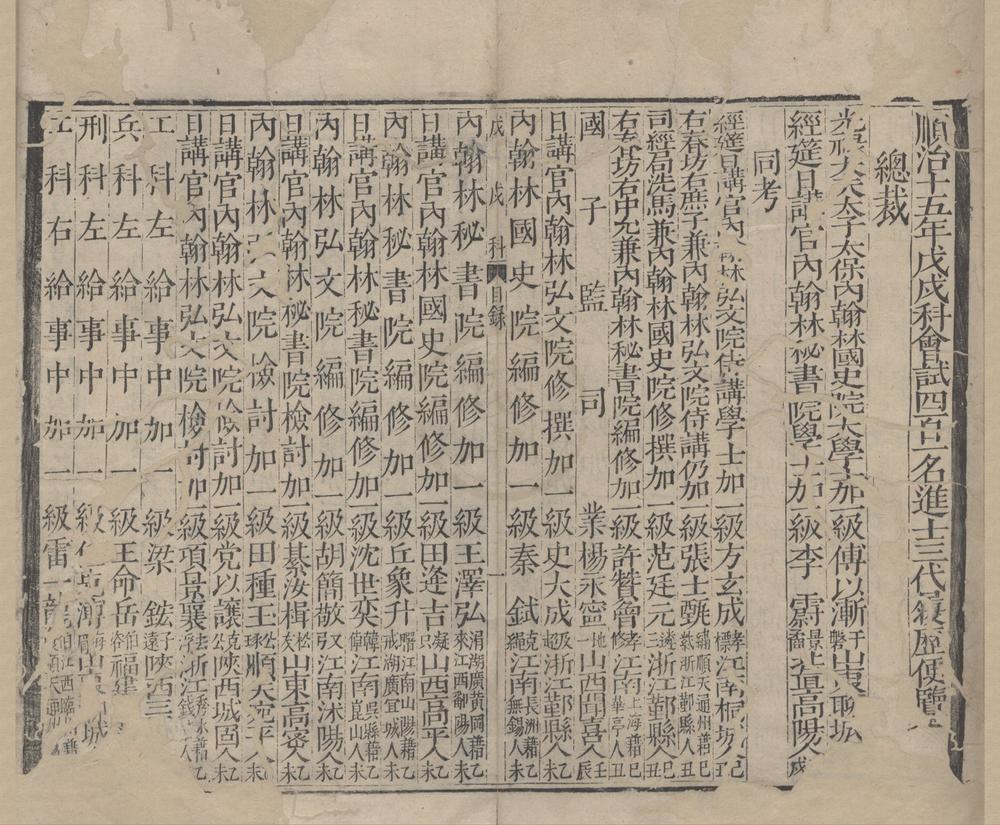 順治十五年戊戌科會試四百一名進士三代履歷便覽
總裁
光祿大夫太子太保內翰林國史院大學士加一級傅以漸于磐山東聊城
經筵日講官內翰林秘書院學士加一級李霨景霱直高陽戌
同考
經筵日講官內翰林弘文院侍講學士加一級方玄成孝標江南桐城人己丑
右春坊右庶子兼內翰林弘文院侍講仍加一級張士甄繡紫順天通州籍浙江鄞縣人己丑
司經局洗馬兼內翰林國史院修撰加一級范廷元遴三浙江鄞縣人己丑
右春坊右中允兼內翰林秘書院編修加一級許贊曾孝修江南上海籍華亭人己丑
國子監司業楊永寧地一山西聞喜人壬辰
日講官內翰林弘文院修撰加一級史大成及超浙江鄞縣人乙未
內翰林國史院編修加一級秦鉽克繩江南長洲籍無錫人乙未
戊戌科 目錄 一
內翰林秘書院編修加一級王澤弘涓來湖廣黃岡籍江西鄱陽人乙未
日講官內翰林國史院編修加一級田逢吉凝只山西高平人乙未
內翰林秘書院編修加一級丘象升曙戒江南山陽籍湖廣宜城人乙未
日講官內翰林秘書院編修加一級沈世奕韓倬江南吳縣籍崑山人乙未
內翰林弘文院編修加一級胡簡敬又江南沭陽人乙未
日講官內翰林秘書院檢討加一級綦汝楫松友山東高密人乙未
內翰林弘文院檢討加一級田種玉公琭順天宛平人乙未
日講官內翰林弘文院檢討加一級党以讓克陝西城固人乙未
日講官內翰林弘文院檢討加一級項景襄去浮浙江秀水籍錢塘人乙未
工科左給事中加一級梁鋐子遠陝西三
兵科左給事中加一級王命岳伯咨福建
刑科左給事中加一級
工科右給事中加一級雷一龍